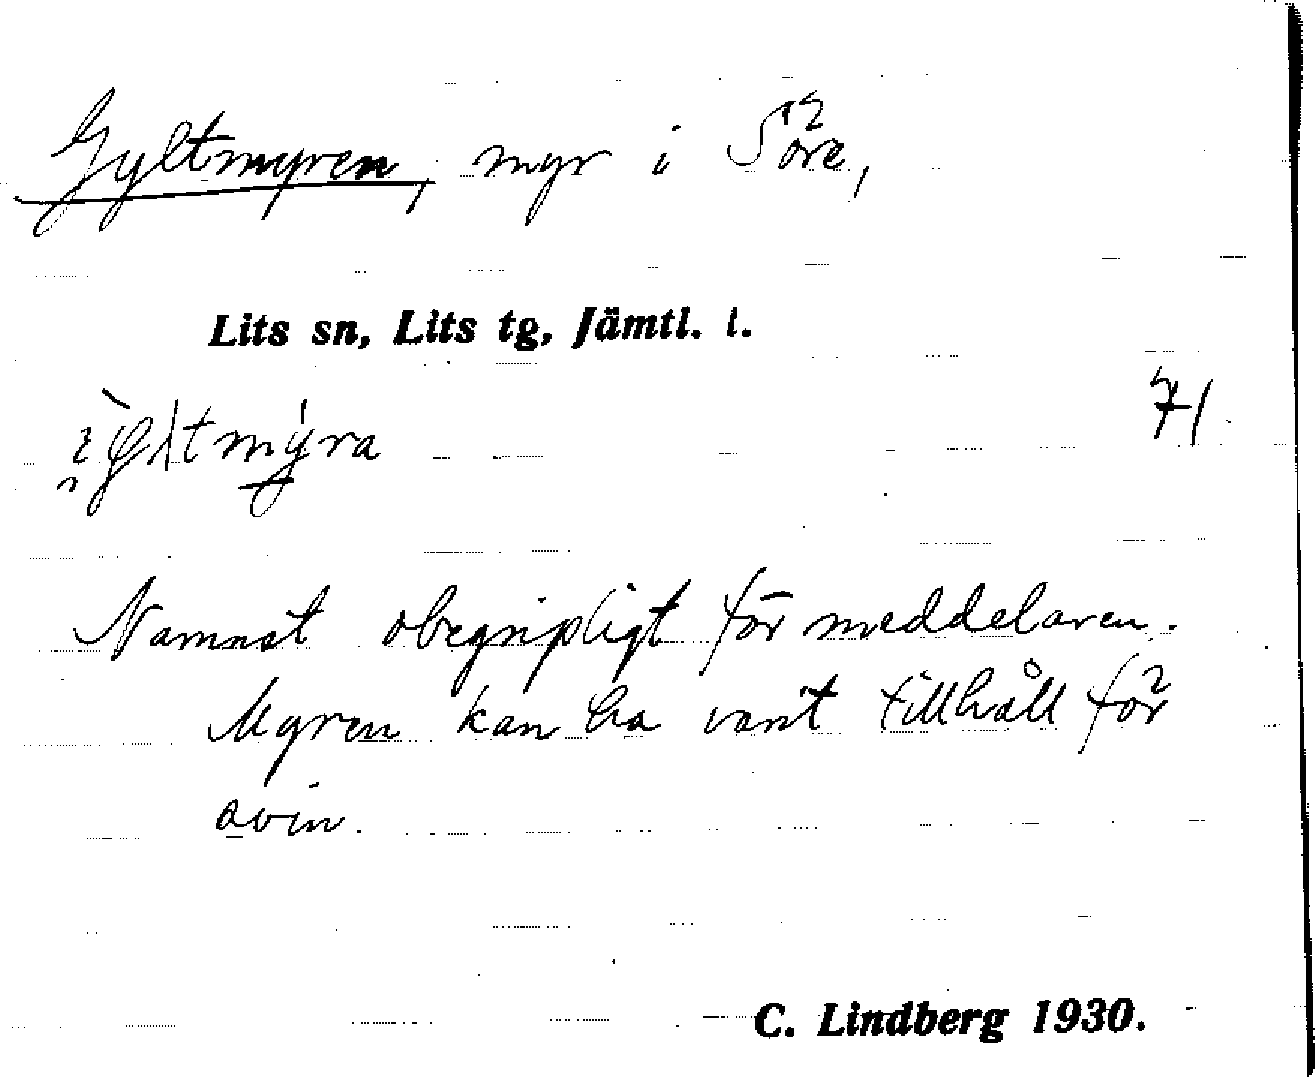 Gyltmyren, myr i Söre,
Lits sn, Lits tg, Jämtl. l.
71
Namnet obegripligt för meddelaren.
Myren kan ha varit tillhåll för
svin.
C. Lindberg 1930.